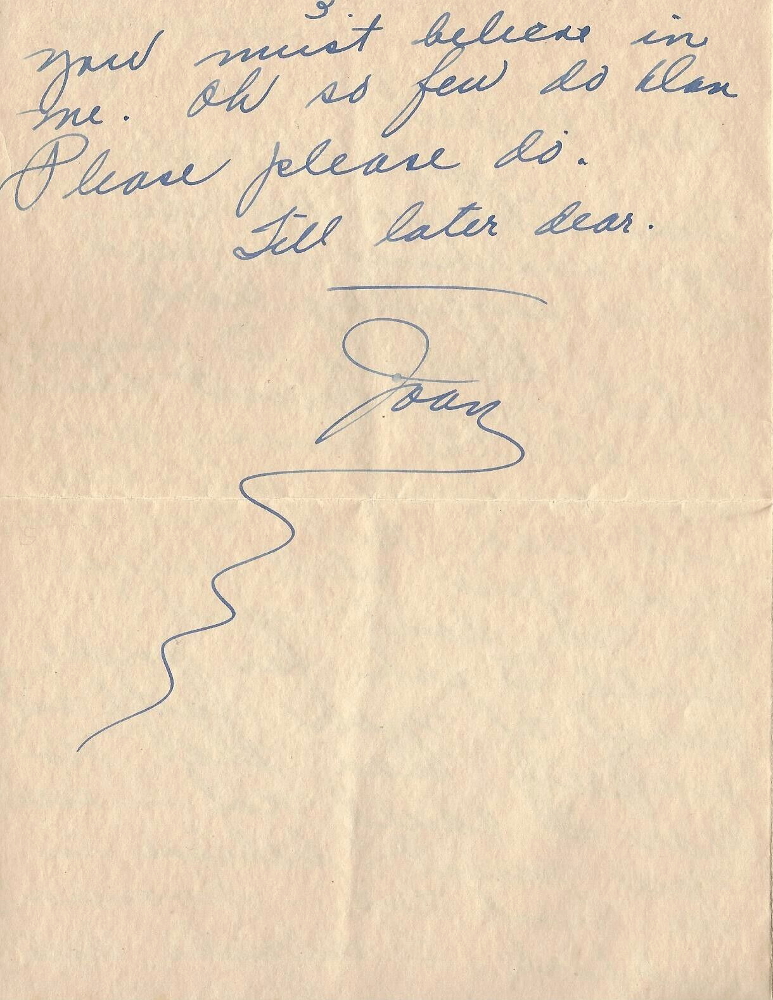 3
you must believe in
me. Oh so few do Dan
Please please do.
Till later dear.
Joan